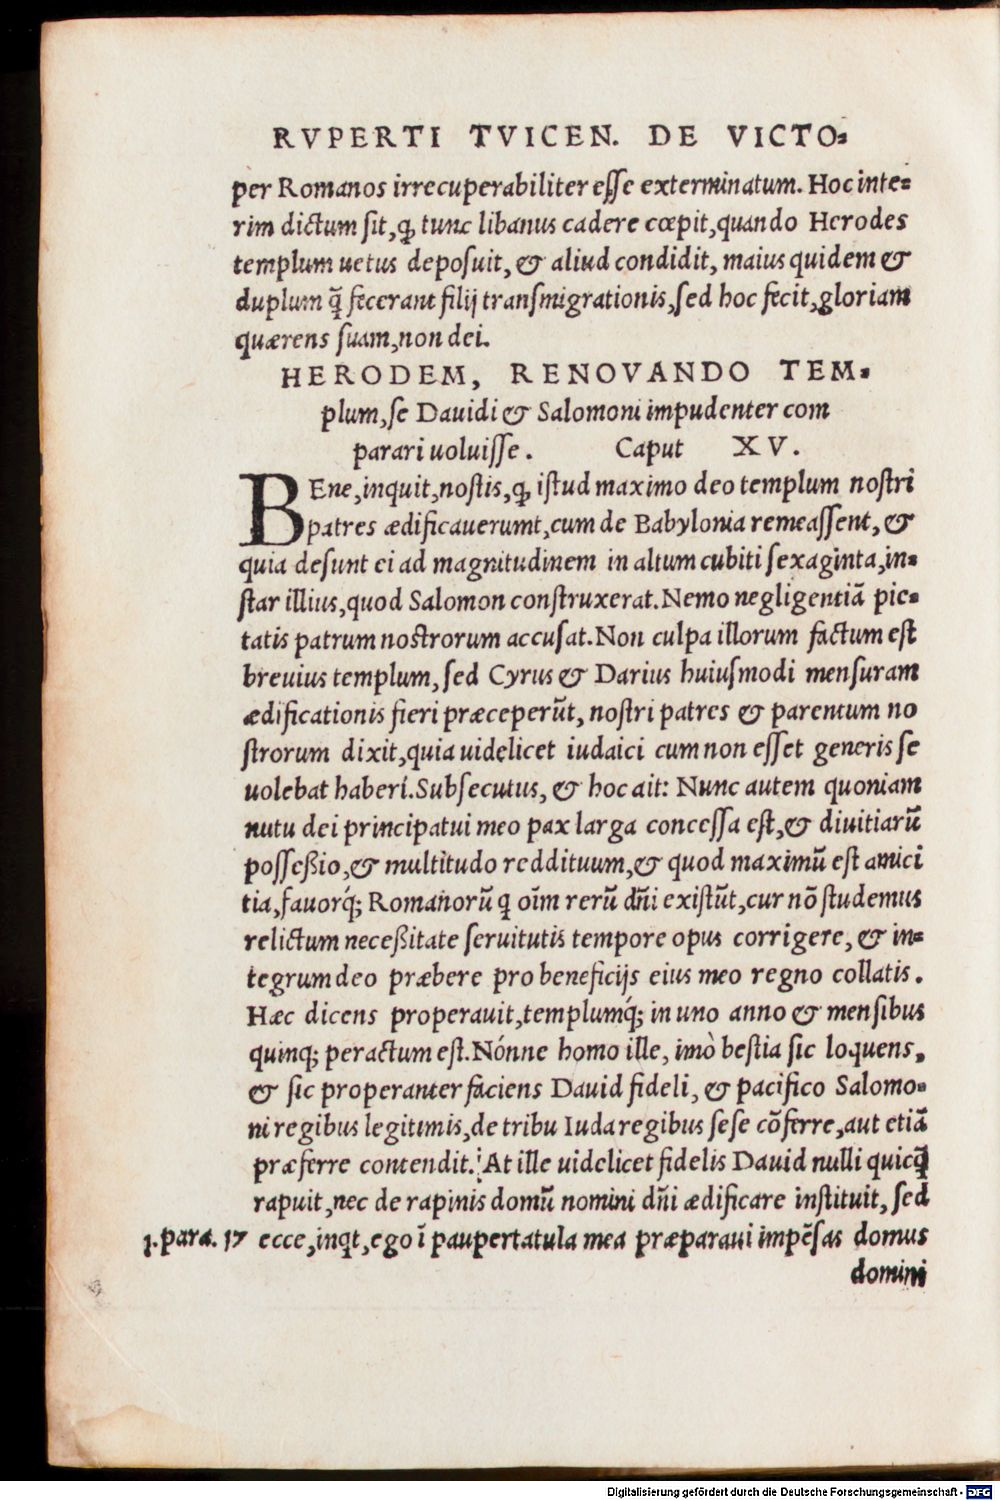 RVPERTI TVICEN. DE VICTO-
per Romanos irrecuperabiliter esse exterminatum. Hoc inte-
rim dictum sit, ꝙ tunc libanus cadere cœpit, quando Herodes
templum uetus deposuit, & aliud condidit, maius quidem &
duplum q̃ fecerant filij transmigrationis, sed hoc fecit, gloriam
quærens suam, non dei.
HERODEM, RENOVANDO TEM-
plum, se Dauidi & Salomoni impudenter com
parari uoluisse. Caput XV.
BEne, inquit, nostis, ꝙ istud maximo deo templum nostri
patres ædificauerunt, cum de Babylonia remeassent, &
quia desunt ei ad magnitudinem in altum cubiti sexaginta, in-
star illius, quod Salomon construxerat. Nemo negligentiã pie-
tatis patrum nostrorum accusat. Non culpa illorum factum est
breuius templum, sed Cyrus & Darius huiusmodi mensuram
ædificationis fieri præceperũt, nostri patres & parentum no
strorum dixit, quia uidelicet iudaici cum non esset generis se
uolebat haberi. Subsecutus, & hoc ait: Nunc autem quoniam
nutu dei principatui meo pax larga concessa est, & diuitiarũ
possessio, & multitudo reddituum, & quod maximũ est amici
tia, fauorq́; Romanorũ ꝗ oĩm rerũ dñi existũt, cur nõ studemus
relictum necessitate seruitutis tempore opus corrigere, & in-
tegrum deo præbere pro beneficijs eius meo regno collatis.
Hæc dicens properauit, templumq́; in uno anno & mensibus
quinq; peractum est. Nónne homo ille, imò bestia sic loquens,
& sic properanter faciens Dauid fideli, & pacifico Salomo-
ni regibus legitimis, de tribu Iuda regibus sese cõferre, aut etiã
præferre contendit? At ille uidelicet fidelis Dauid nulli quicq̃
rapuit, nec de rapinis domũ nomini dñi ædificare instituit, sed
1. para. 17 ecce, inqt, ego ĩ paupertatula mea præparaui impẽsas domus
domini
Digitalisierung gefördert durch die Deutsche Forschungsgemeinschaft - DFG